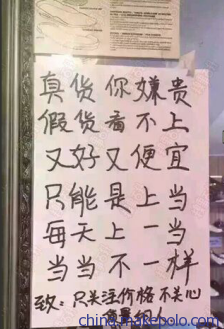 真货你嫌贵
假货看不上
又好又便宜
只能是上当
每天上一当
当当不一样
致：只关注价格不关心
china.makepolo.com